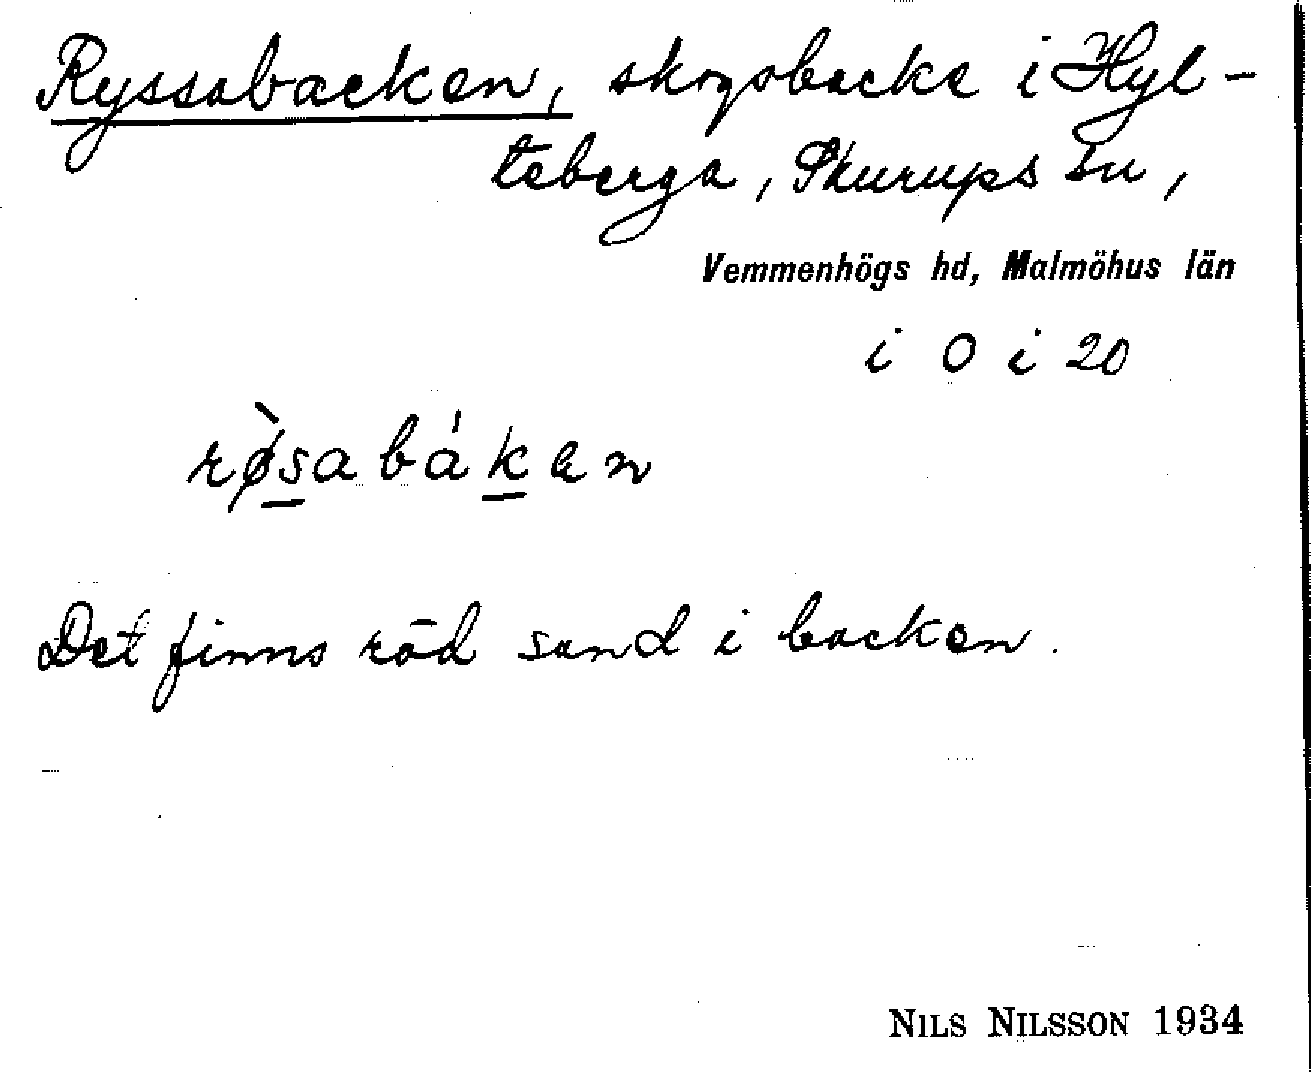 Ryssabacken, skogsbacke i Hyl-
teberga, Skurups sn,
Vemmenhögs hd, Malmöhus län
i O i 20
rø̀sabákan
Det finns röd sand i backen.
NILS NILSSON 1934